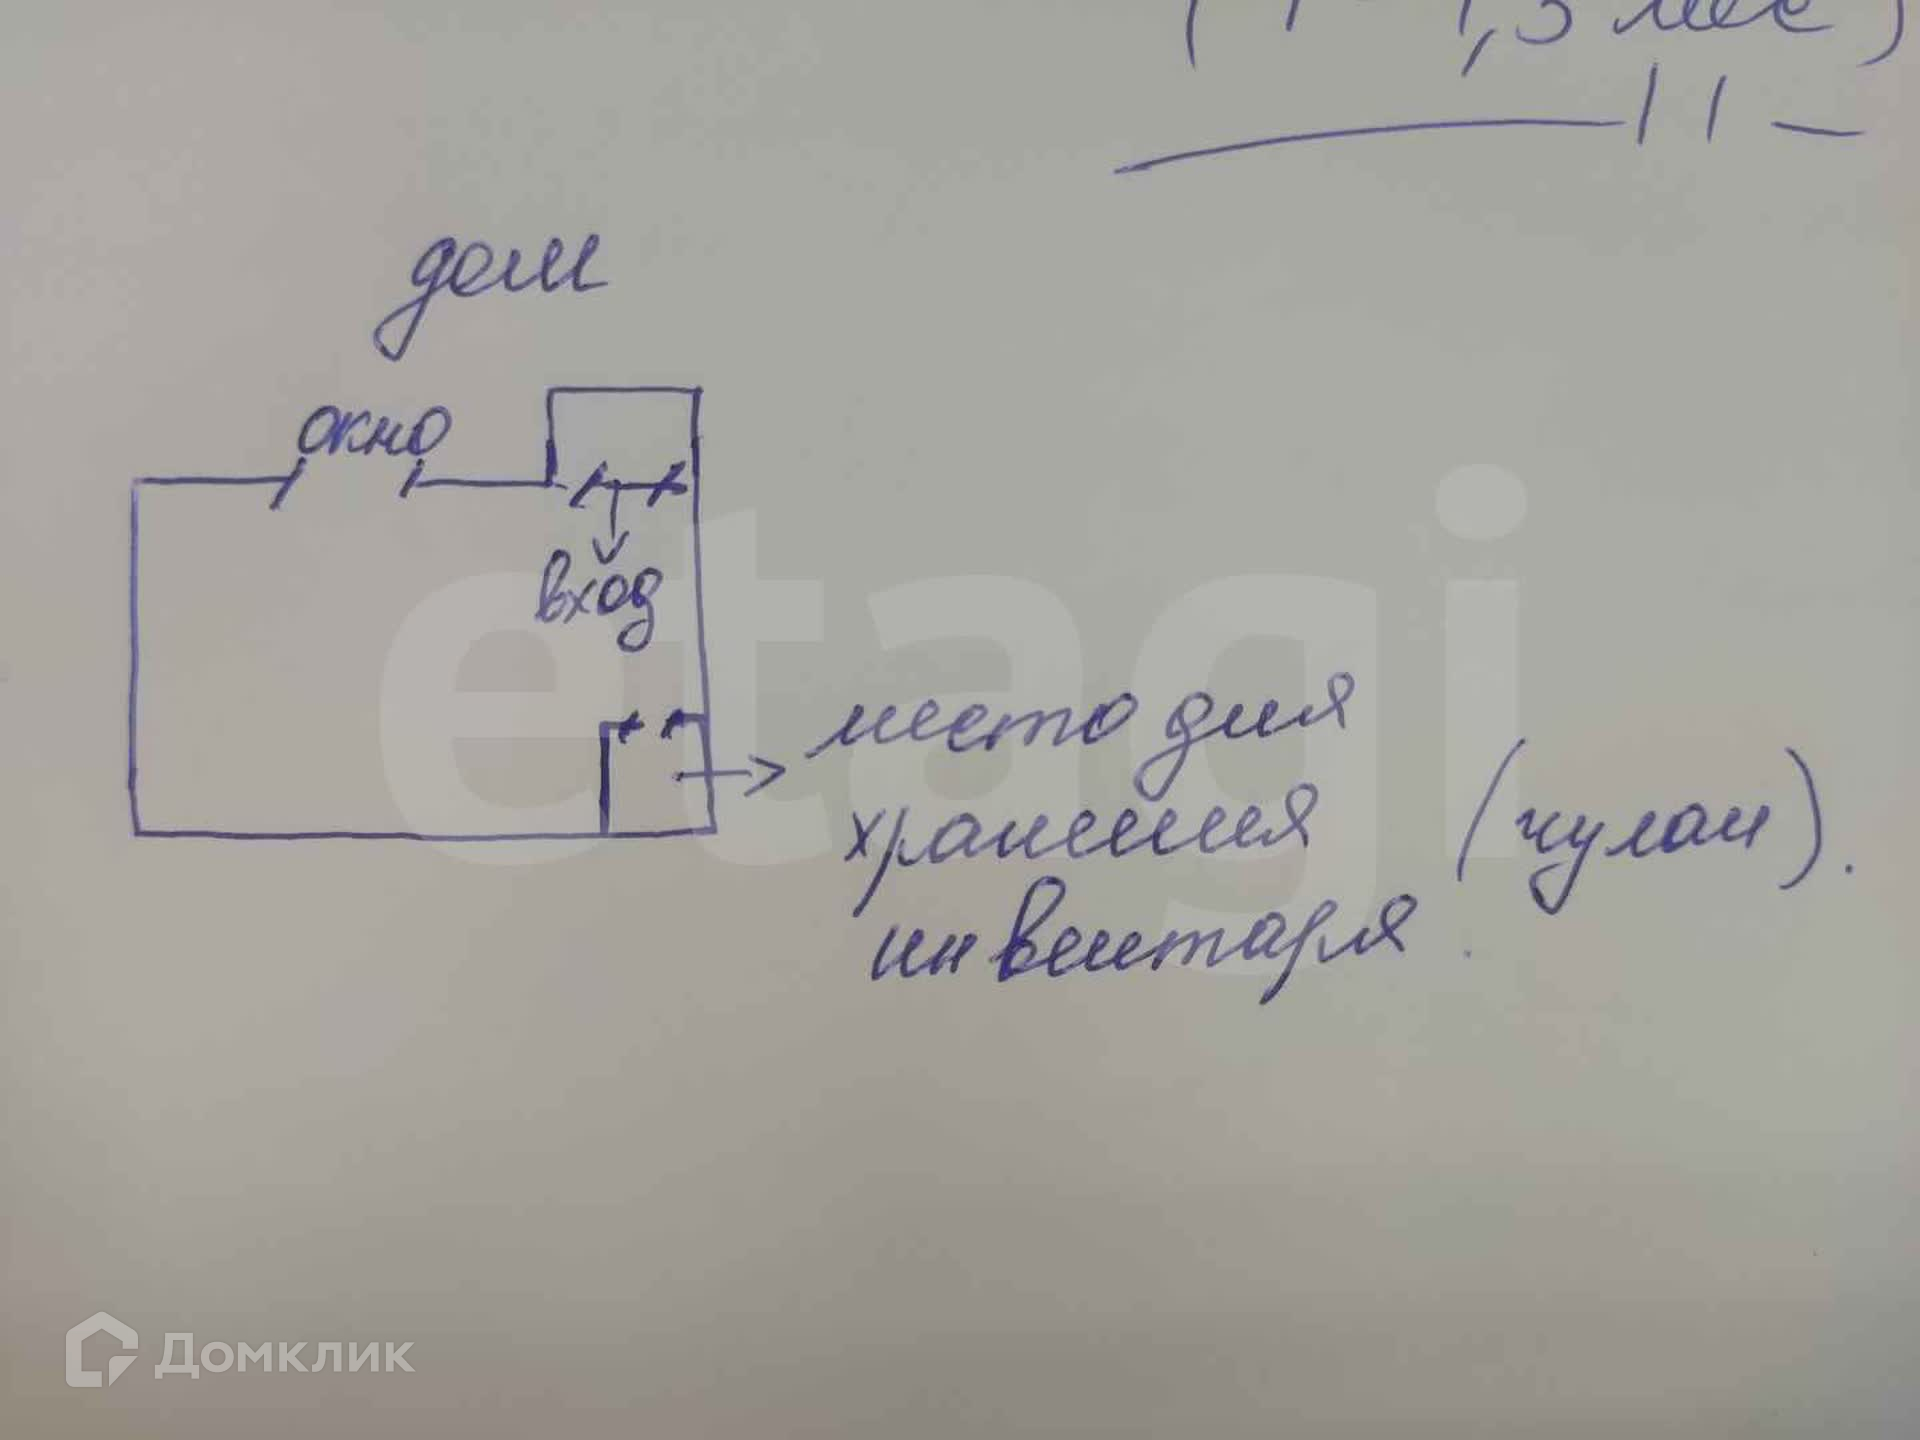 1,5 мес)
дом
окно
вход
место для
хранения (чулан).
инвентаря.
etagi
Домклик